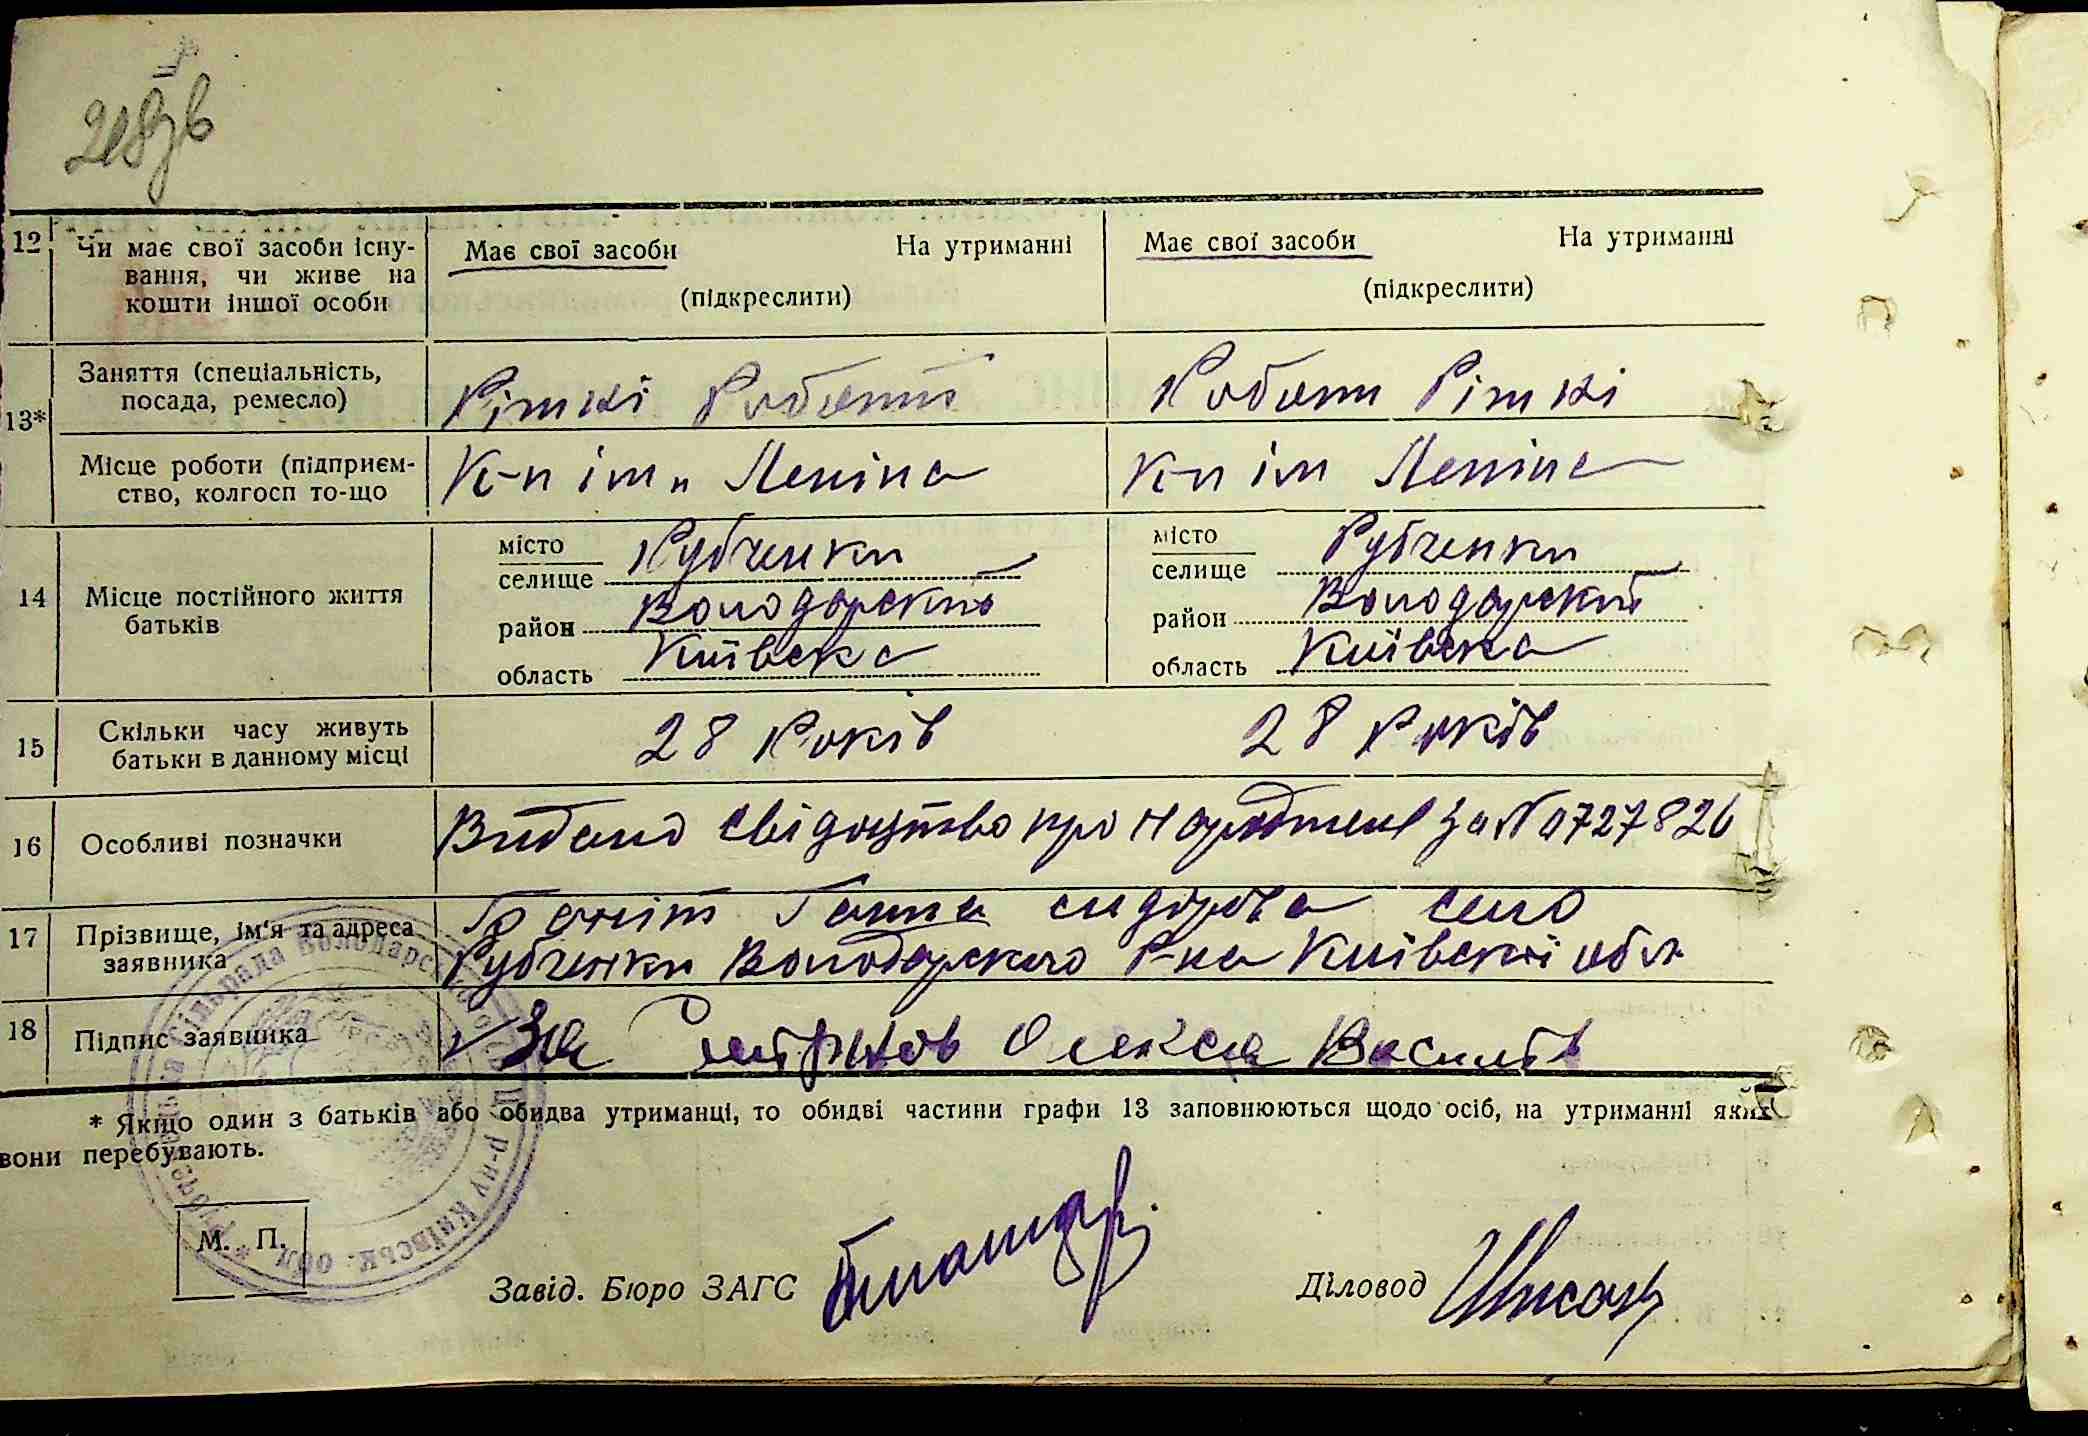 218зв
12 Чи має свої засоби існу-
вання, чи живе на
кошти іншої особи
Має свої засоби На утриманні
(підкреслити)
Має свої засоби На утриманні
(підкреслити)
13* Заняття (спеціальність,
посада, ремесло)
Ріжні Работи
Работи Ріжні
Місце роботи (підприєм-
ство, колгосп то-що
К-п ім. Леніна
К-п ім Леніна
14 Місце постійного життя
батьків
місто
селище Рубченки
район Володарский
область Київска
місто
селище Рубченки
район Володарский
область Київска
15 Скільки часу живуть
батьки в данному місці
28 Років
28 Років
16 Особливі позначки
Видано свідоцтво про народження за №
17 Прізвище, ім'я та адреса
заявника
Ганна село
Рубченки Володарского Р-на Київскої обл
18 Підпис заявника
За Олекса Василів
* Якщо один з батьків або обидва утриманці, то обидві частини графи 13 заповнюються щодо осіб, на утриманні яких
вони перебувають.
М. П.
Завід. Бюро ЗАГС
Діловод